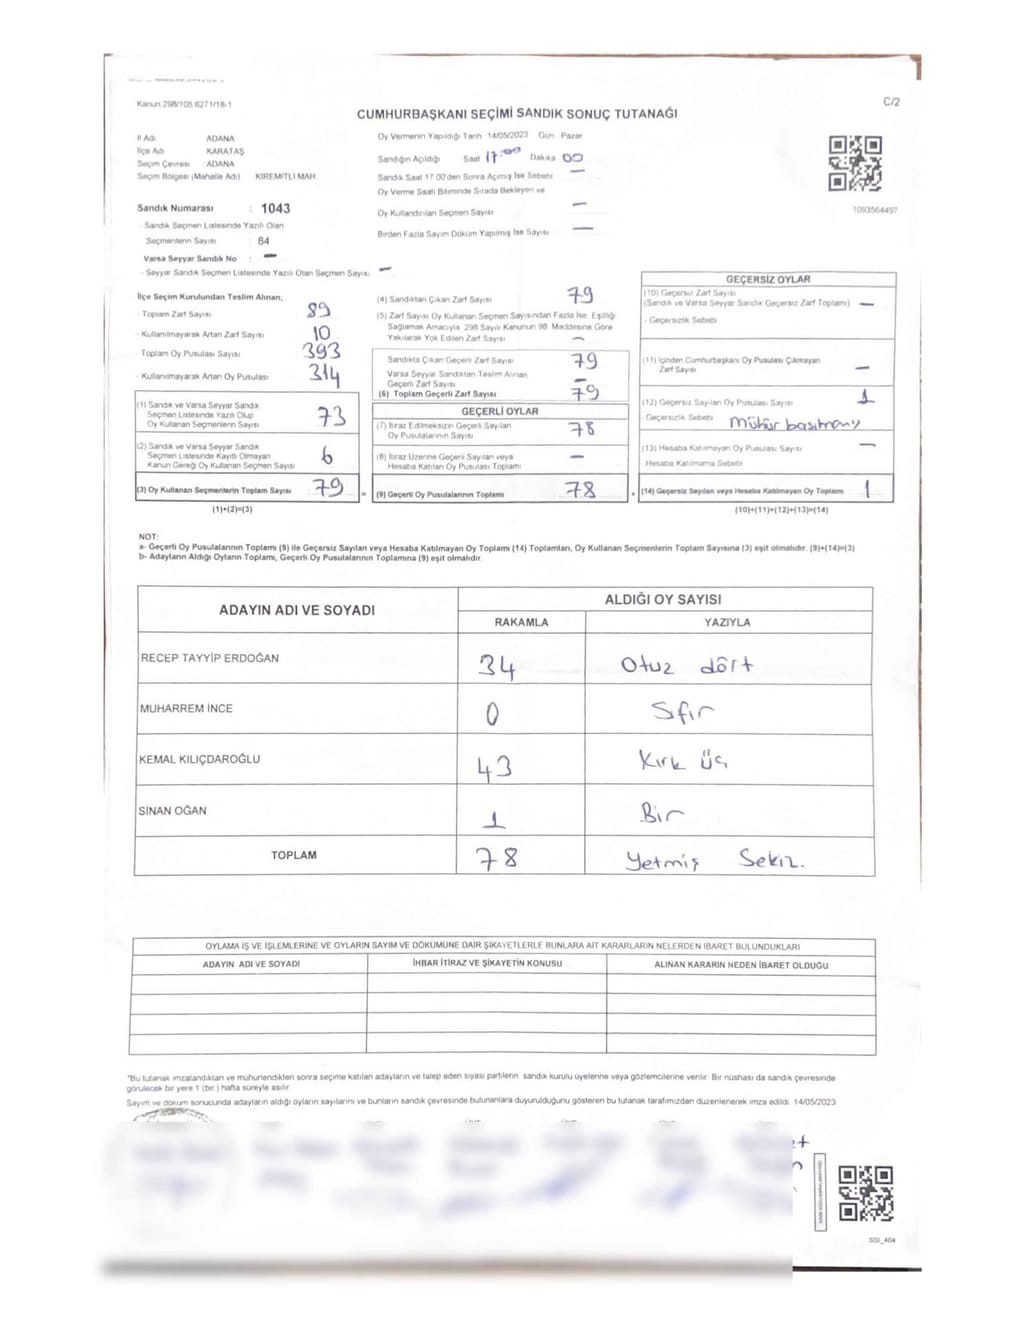 Kanun 298/105 6271/18-1
C/2
CUMHURBAŞKANI SEÇİMİ SANDIK SONUÇ TUTANAĞI
İl Adı ADANA
İlçe Adı KARATAŞ
Seçim Çevresi : ADANA
Seçim Bölgesi (Mahalle Adı) KIREMITLI MAH.
Sandık Numarası : 1043
- Sandık Seçmen Listesinde Yazılı Olan
Seçmenlerin Sayısı 84
Varsa Seyyar Sandık No : -
- Seyyar Sandık Seçmen Listesinde Yazılı Olan Seçmen Sayısı -
Oy Vermenin Yapıldığı Tarih 14/05/2023 Gün Pazar
Sandığın Açıldığı Saat 17:00 Dakika 00
Sandık Saat 17 00'den Sonra Açımış İse Sebebi -
Oy Verme Saati Bitiminde Sırada Bekleyen ve
Oy Kullandırılan Seçmen Sayısı -
Birden Fazla Sayım Döküm Yapılmış İse Sayısı -
1093564497
İlçe Seçim Kurulundan Teslim Alınan;
- Toplam Zarf Sayısı 89
- Kullanılmayarak Artan Zarf Sayısı 10
- Toplam Oy Pusulası Sayısı 393
- Kullanılmayarak Artan Oy Pusulası 314
(1) Sandık ve Varsa Seyyar Sandık
Seçmen Listesinde Yazılı Olup
Oy Kullanan Seçmenlerin Sayısı 73
(2) Sandık ve Varsa Seyyar Sandık
Seçmen Listesinde Kayıtlı Olmayan
Kanun Gereği Oy Kullanan Seçmen Sayısı 6
(3) Oy Kullanan Seçmenlerin Toplam Sayısı 79
(1)+(2)=(3)
(4) Sandıktan Çıkan Zarf Sayısı 79
(5) Zarf Sayısı Oy Kullanan Seçmen Sayısından Fazla İse, Eşitliği
Sağlamak Amacıyla 298 Sayılı Kanunun 98. Maddesine Göre
Yakılarak Yok Edilen Zarf Sayısı -
Sandıkta Çıkan Geçerli Zarf Sayısı 79
Varsa Seyyar Sandıktan Teslim Alınan
Geçerli Zarf Sayısı -
(6) Toplam Geçerli Zarf Sayısı 79
GEÇERLİ OYLAR
(7) İtiraz Edilmeksizin Geçerli Sayılan
Oy Pusulalarının Sayısı 78
(8) İtiraz Üzerine Geçerli Sayılan veya
Hesaba Katılan Oy Pusulası Toplamı -
= (9) Geçerli Oy Pusulalarının Toplamı 78
GEÇERSİZ OYLAR
(10) Geçersiz Zarf Sayısı
(Sandık ve Varsa Seyyar Sandık Geçersiz Zarf Toplamı) -
- Geçersizlik Sebebi
(11) İçinden Cumhurbaşkanı Oy Pusulası Çıkmayan
Zarf Sayısı -
(12) Geçersiz Sayılan Oy Pusulası Sayısı 1
- Geçersizlik Sebebi Mühür
(13) Hesaba Katılmayan Oy Pusulası Sayısı -
- Hesaba Katılmama Sebebi
+ (14) Geçersiz Sayılan veya Hesaba Katılmayan Oy Toplamı 1
(10)+(11)+(12)+(13)=(14)
NOT:
a- Geçerli Oy Pusulalarının Toplamı (9) ile Geçersiz Sayılan veya Hesaba Katılmayan Oy Toplamı (14) Toplamları, Oy Kullanan Seçmenlerin Toplam Sayısına (3) eşit olmalıdır. (9)+(14)=(3)
b- Adayların Aldığı Oyların Toplamı, Geçerli Oy Pusulalarının Toplamına (9) eşit olmalıdır.
ADAYIN ADI VE SOYADI
ALDIĞI OY SAYISI
RAKAMLA YAZIYLA
RECEP TAYYİP ERDOĞAN 34 Otuz dört
MUHARREM İNCE 0 Sıfır
KEMAL KILIÇDAROĞLU 43 Kırk üç
SİNAN OĞAN 1 Bir
TOPLAM 78 Yetmiş Sekiz.
OYLAMA İŞ VE İŞLEMLERİNE VE OYLARIN SAYIM VE DÖKÜMÜNE DAİR ŞİKAYETLERLE BUNLARA AİT KARARLARIN NELERDEN İBARET BULUNDUKLARI
ADAYIN ADI VE SOYADI İHBAR İTİRAZ VE ŞİKAYETİN KONUSU ALINAN KARARIN NEDEN İBARET OLDUĞU
*Bu tutanak imzalandıktan ve mühürlendikten sonra seçime katılan adayların ve talep eden siyasi partilerin sandık kurulu üyelerine veya gözlemcilerine verilir. Bir nüshası da sandık çevresinde
görülecek bir yere 1 (bir ) hafta süreyle asılır
Sayım ve döküm sonucunda adayların aldığı oyların sayılarını ve bunların sandık çevresinde bulunanlara duyurulduğunu gösteren bu tutanak tarafımızdan düzenlenerek imza edildi. 14/05/2023
SGI_404